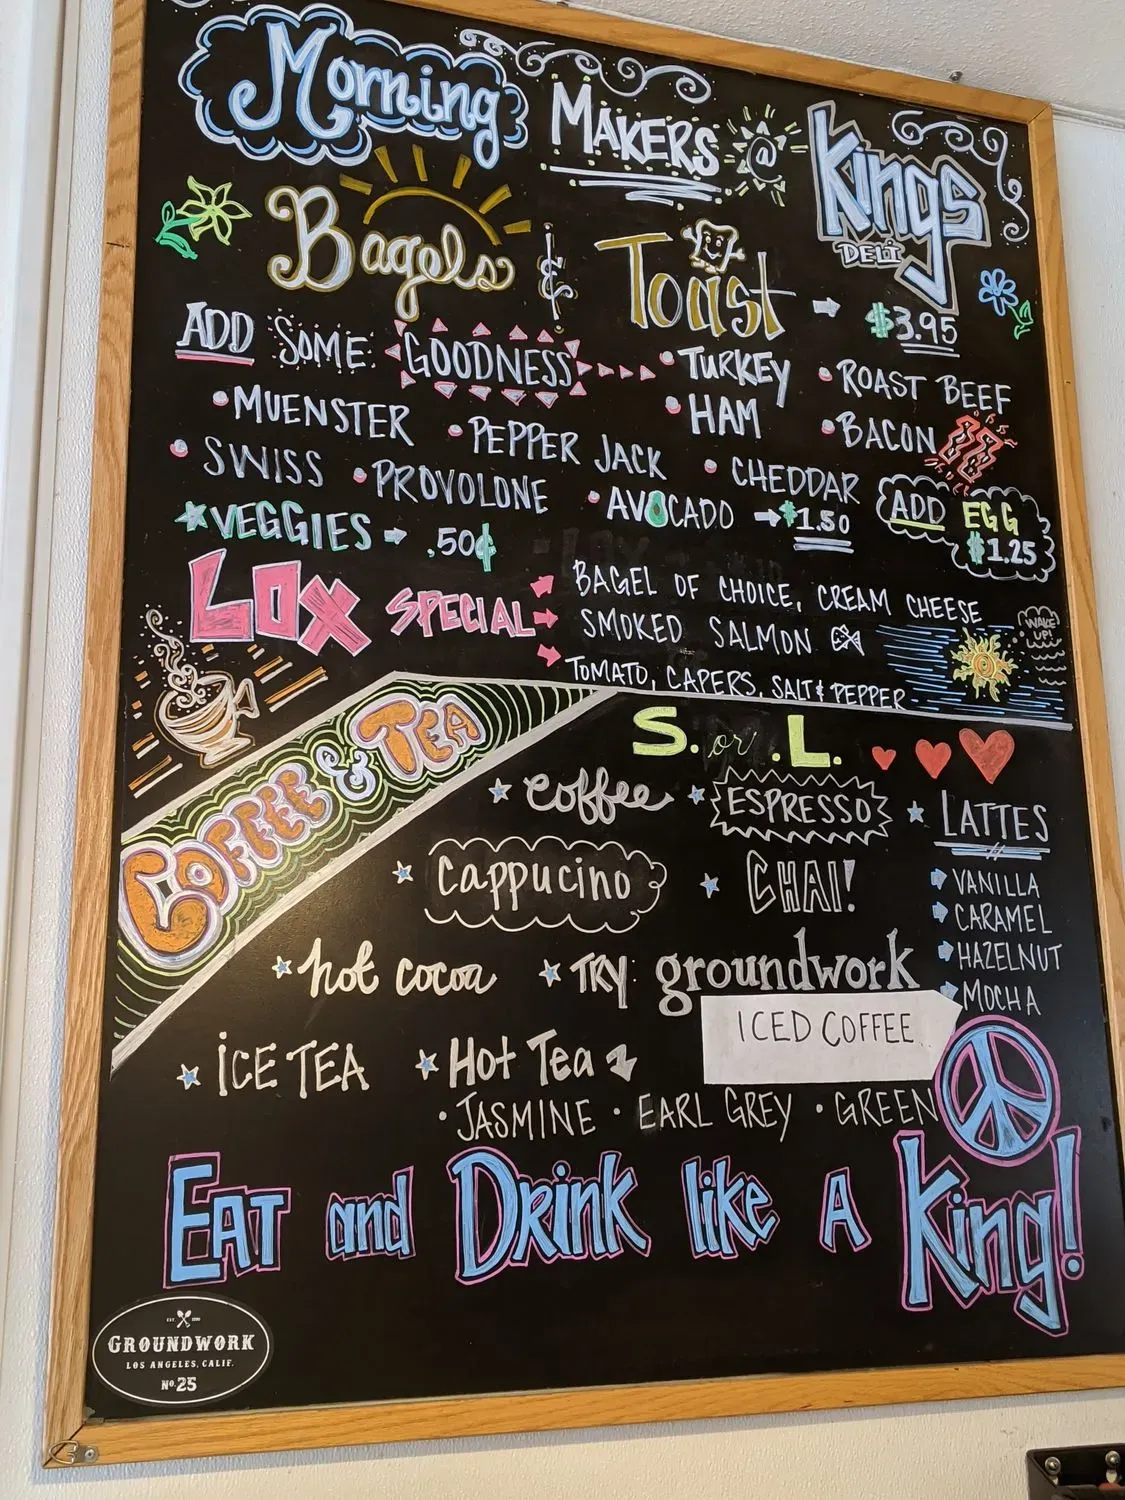 Morning MAKERS @ Kings
DELI
Bagels & Toast → $3.95
ADD SOME GOODNESS • TURKEY • ROAST BEEF
• MUENSTER • HAM • BACON
• PEPPER JACK • CHEDDAR
• SWISS • PROVOLONE • AVOCADO → $1.50 ADD EGG
$1.25
★ VEGGIES → .50¢
LOX SPECIAL → BAGEL OF CHOICE, CREAM CHEESE
SMOKED SALMON
TOMATO, CAPERS, SALT & PEPPER
WAKE
UP!
COFFEE & TEA
S. or .L.
★ coffee ★ ESPRESSO ★ LATTES
★ Cappucino ★ CHAI!
VANILLA
CARAMEL
HAZELNUT
MOCHA
★ hot cocoa ★ TRY groundwork
ICED COFFEE
★ ICE TEA ★ Hot Tea
• JASMINE • EARL GREY • GREEN
EAT and Drink like A King!
EST. 1990
GROUNDWORK
LOS ANGELES, CALIF.
No. 25